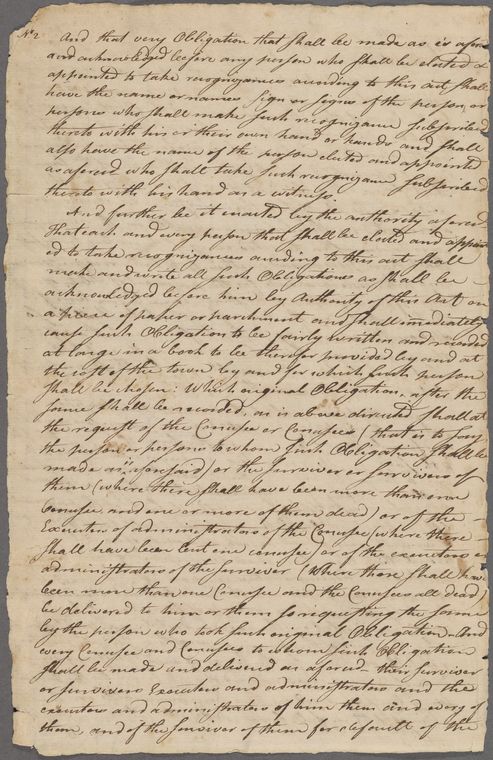 No 2
And that very Obligation that shall be made as is afore
and acknowledged before any person who shall be elected &
appointed to take recognizances according to this act, shall
have the name or names Sign or Signs of the person, or
persons who shall make such recognizance Subscribed
thereto with his or their own hand or hands and shall
also have the name of the person elected and appointed
as afores'd who shall take such recognizance Subscribed
thereto with his hand as a witness.
And further be it enacted by the authority afores'd
that each and every person that shall be elected and appoint
ed to take recognizances according to this act shall
make and write all such Obligations as shall be
acknowledged before him by Authority of this Act on
a piece of paper or parchment and shall immediately
cause such Obligation to be fairly written and recorded
at large in a book to be therefor provided by and at
the cost of the town by and for which such person
shall be chosen: Which original Obligation, after the
same shall be recorded, as is above directed shall at
the request of the Conusee or Conusees (that is to say
the person or persons to whom such Obligation shall be
made as aforesaid) or the survivor or survivors of
them (where there shall have been more than one
Conusee and one or more of them dead) or of the
Executors of administrators of the Conusee (where there
shall have been but one conusee) or of the executors or
administrators of the survivor (where there shall have
been more than one Conusee and the Conusees all dead)
be delivered to him or them so requesting the same
by the person who took such original Obligation. And
every Conusee and Conusees to whom such Obligation
shall be made and delivered as afores'd their survivor
or survivors Executors and administrators and the
executors and administrators of him them and every of
them, and of the survivor of them for default of the